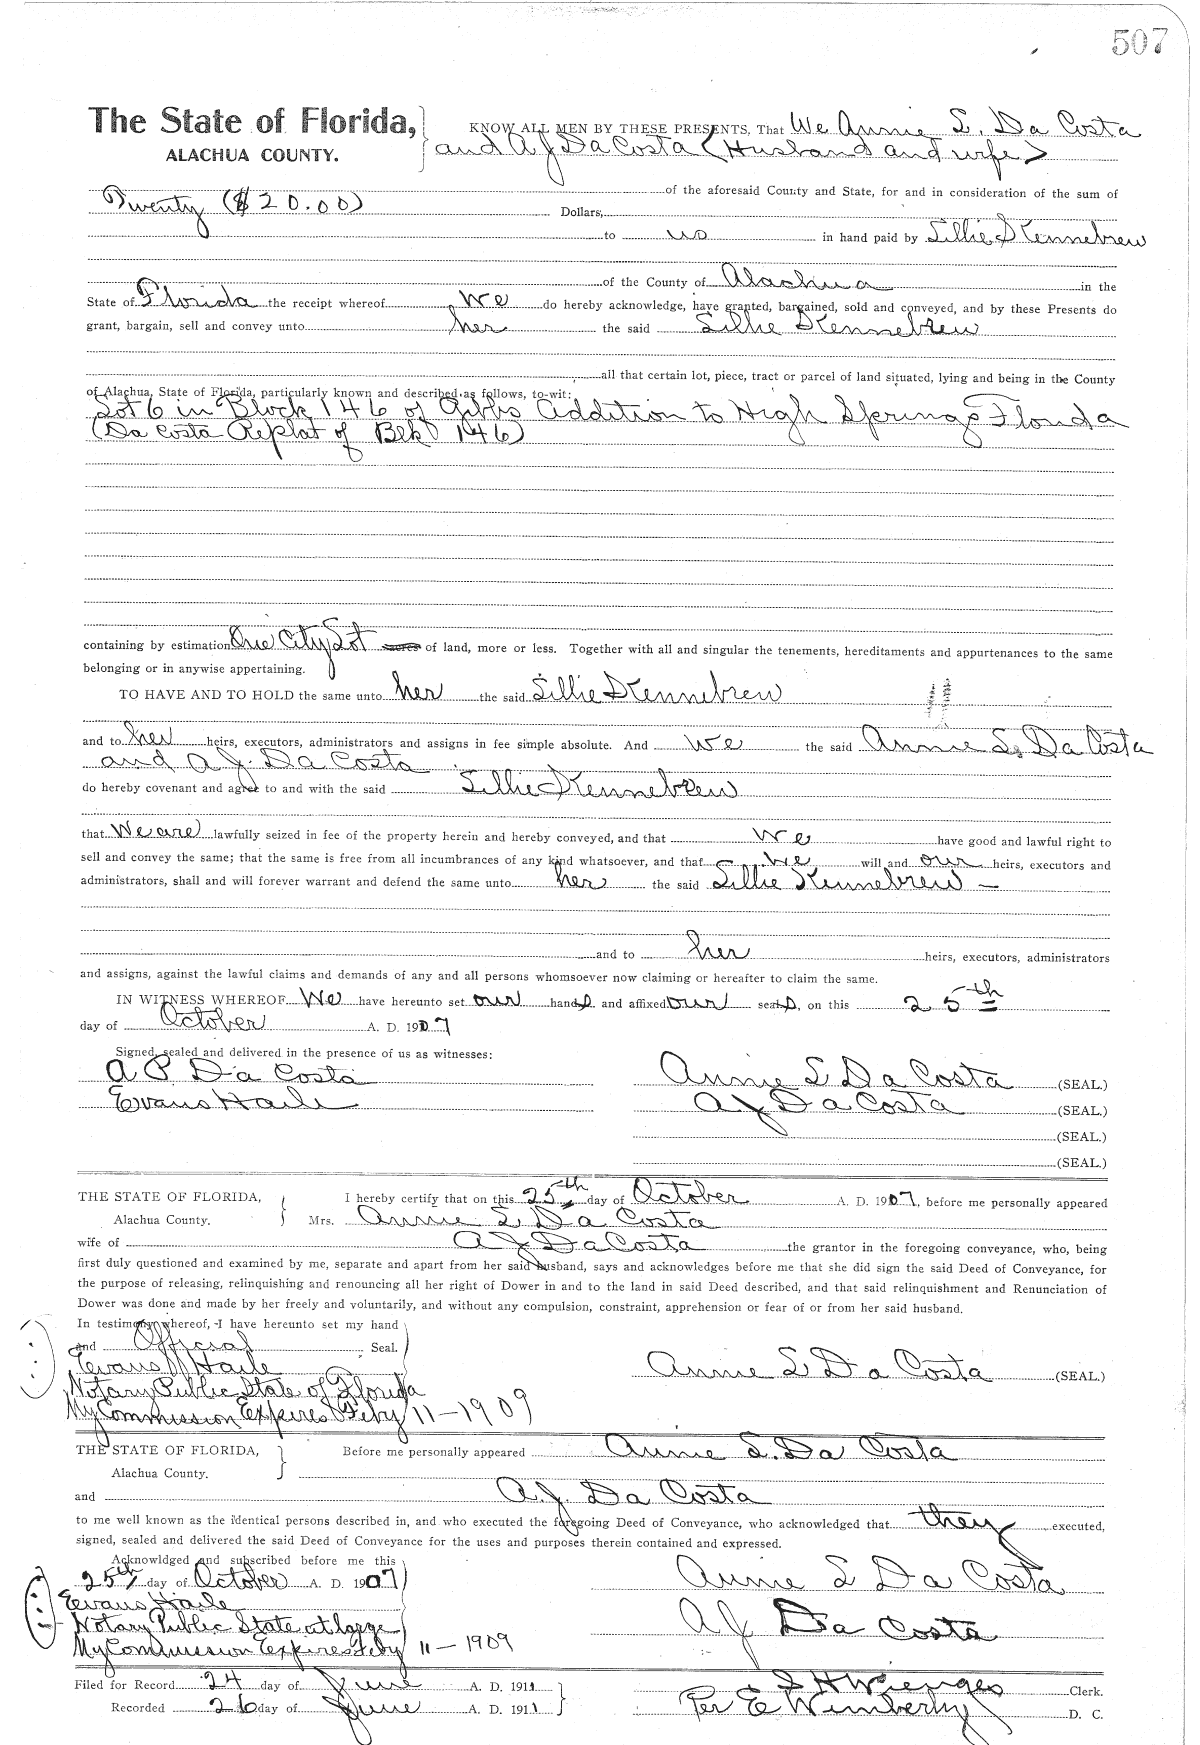 507
The State of Florida, KNOW ALL MEN BY THESE PRESENTS, That We Annie L. Da Costa
ALACHUA COUNTY. and A J Da Costa (Husband and wife)
of the aforesaid County and State, for and in consideration of the sum of
Twenty ($20.00) Dollars,
to us in hand paid by Lillie Kennebrew
of the County of Alachua in the
State of Florida the receipt whereof We do hereby acknowledge, have granted, bargained, sold and conveyed, and by these Presents do
grant, bargain, sell and convey unto her the said Lillie Kennebrew
all that certain lot, piece, tract or parcel of land situated, lying and being in the County
of Alachua, State of Florida, particularly known and described as follows, to-wit:
Lot 6 in Block 146 of Gibbs Addition to High Springs Florida
(Da Costa Replat of Blk 146)
containing by estimation One City Lot acres of land, more or less. Together with all and singular the tenements, hereditaments and appurtenances to the same
belonging or in anywise appertaining.
TO HAVE AND TO HOLD the same unto her the said Lillie Kennebrew
and to her heirs, executors, administrators and assigns in fee simple absolute. And We the said Annie L. Da Costa
and A J. Da Costa
do hereby covenant and agree to and with the said Lillie Kennebrew
that We are lawfully seized in fee of the property herein and hereby conveyed, and that We have good and lawful right to
sell and convey the same; that the same is free from all incumbrances of any kind whatsoever, and that We will and our heirs, executors and
administrators, shall and will forever warrant and defend the same unto her the said Lillie Kennebrew —
and to her heirs, executors, administrators
and assigns, against the lawful claims and demands of any and all persons whomsoever now claiming or hereafter to claim the same.
IN WITNESS WHEREOF We have hereunto set our hands and affixed our seals, on this 25th
day of October A. D. 1907
Signed, sealed and delivered in the presence of us as witnesses:
A P Da Costa Annie L Da Costa (SEAL.)
Evans Haile A J Da Costa (SEAL.)
(SEAL.)
(SEAL.)
THE STATE OF FLORIDA, I hereby certify that on this 25th day of October A. D. 1907, before me personally appeared
Alachua County. Mrs. Annie L Da Costa
wife of A J Da Costa the grantor in the foregoing conveyance, who, being
first duly questioned and examined by me, separate and apart from her said husband, says and acknowledges before me that she did sign the said Deed of Conveyance, for
the purpose of releasing, relinquishing and renouncing all her right of Dower in and to the land in said Deed described, and that said relinquishment and Renunciation of
Dower was done and made by her freely and voluntarily, and without any compulsion, constraint, apprehension or fear of or from her said husband.
In testimony whereof, I have hereunto set my hand
and Official Seal.
Evans Haile Annie L Da Costa (SEAL.)
Notary Public State of Florida
My Commission Expires Feby 11-1909
THE STATE OF FLORIDA, Before me personally appeared Annie L. Da Costa
Alachua County.
and A. J. Da Costa
to me well known as the identical persons described in, and who executed the foregoing Deed of Conveyance, who acknowledged that they executed,
signed, sealed and delivered the said Deed of Conveyance for the uses and purposes therein contained and expressed.
Acknowldged and subscribed before me this
25th day of October A. D. 1907 Annie L Da Costa
Evans Haile
Notary Public State at large A J Da Costa
My Commission Expires Feby 11-1909
Filed for Record 24 day of June A. D. 1911 S H Wienges Clerk.
Recorded 26 day of June A. D. 1911 Per E Wimberly D. C.